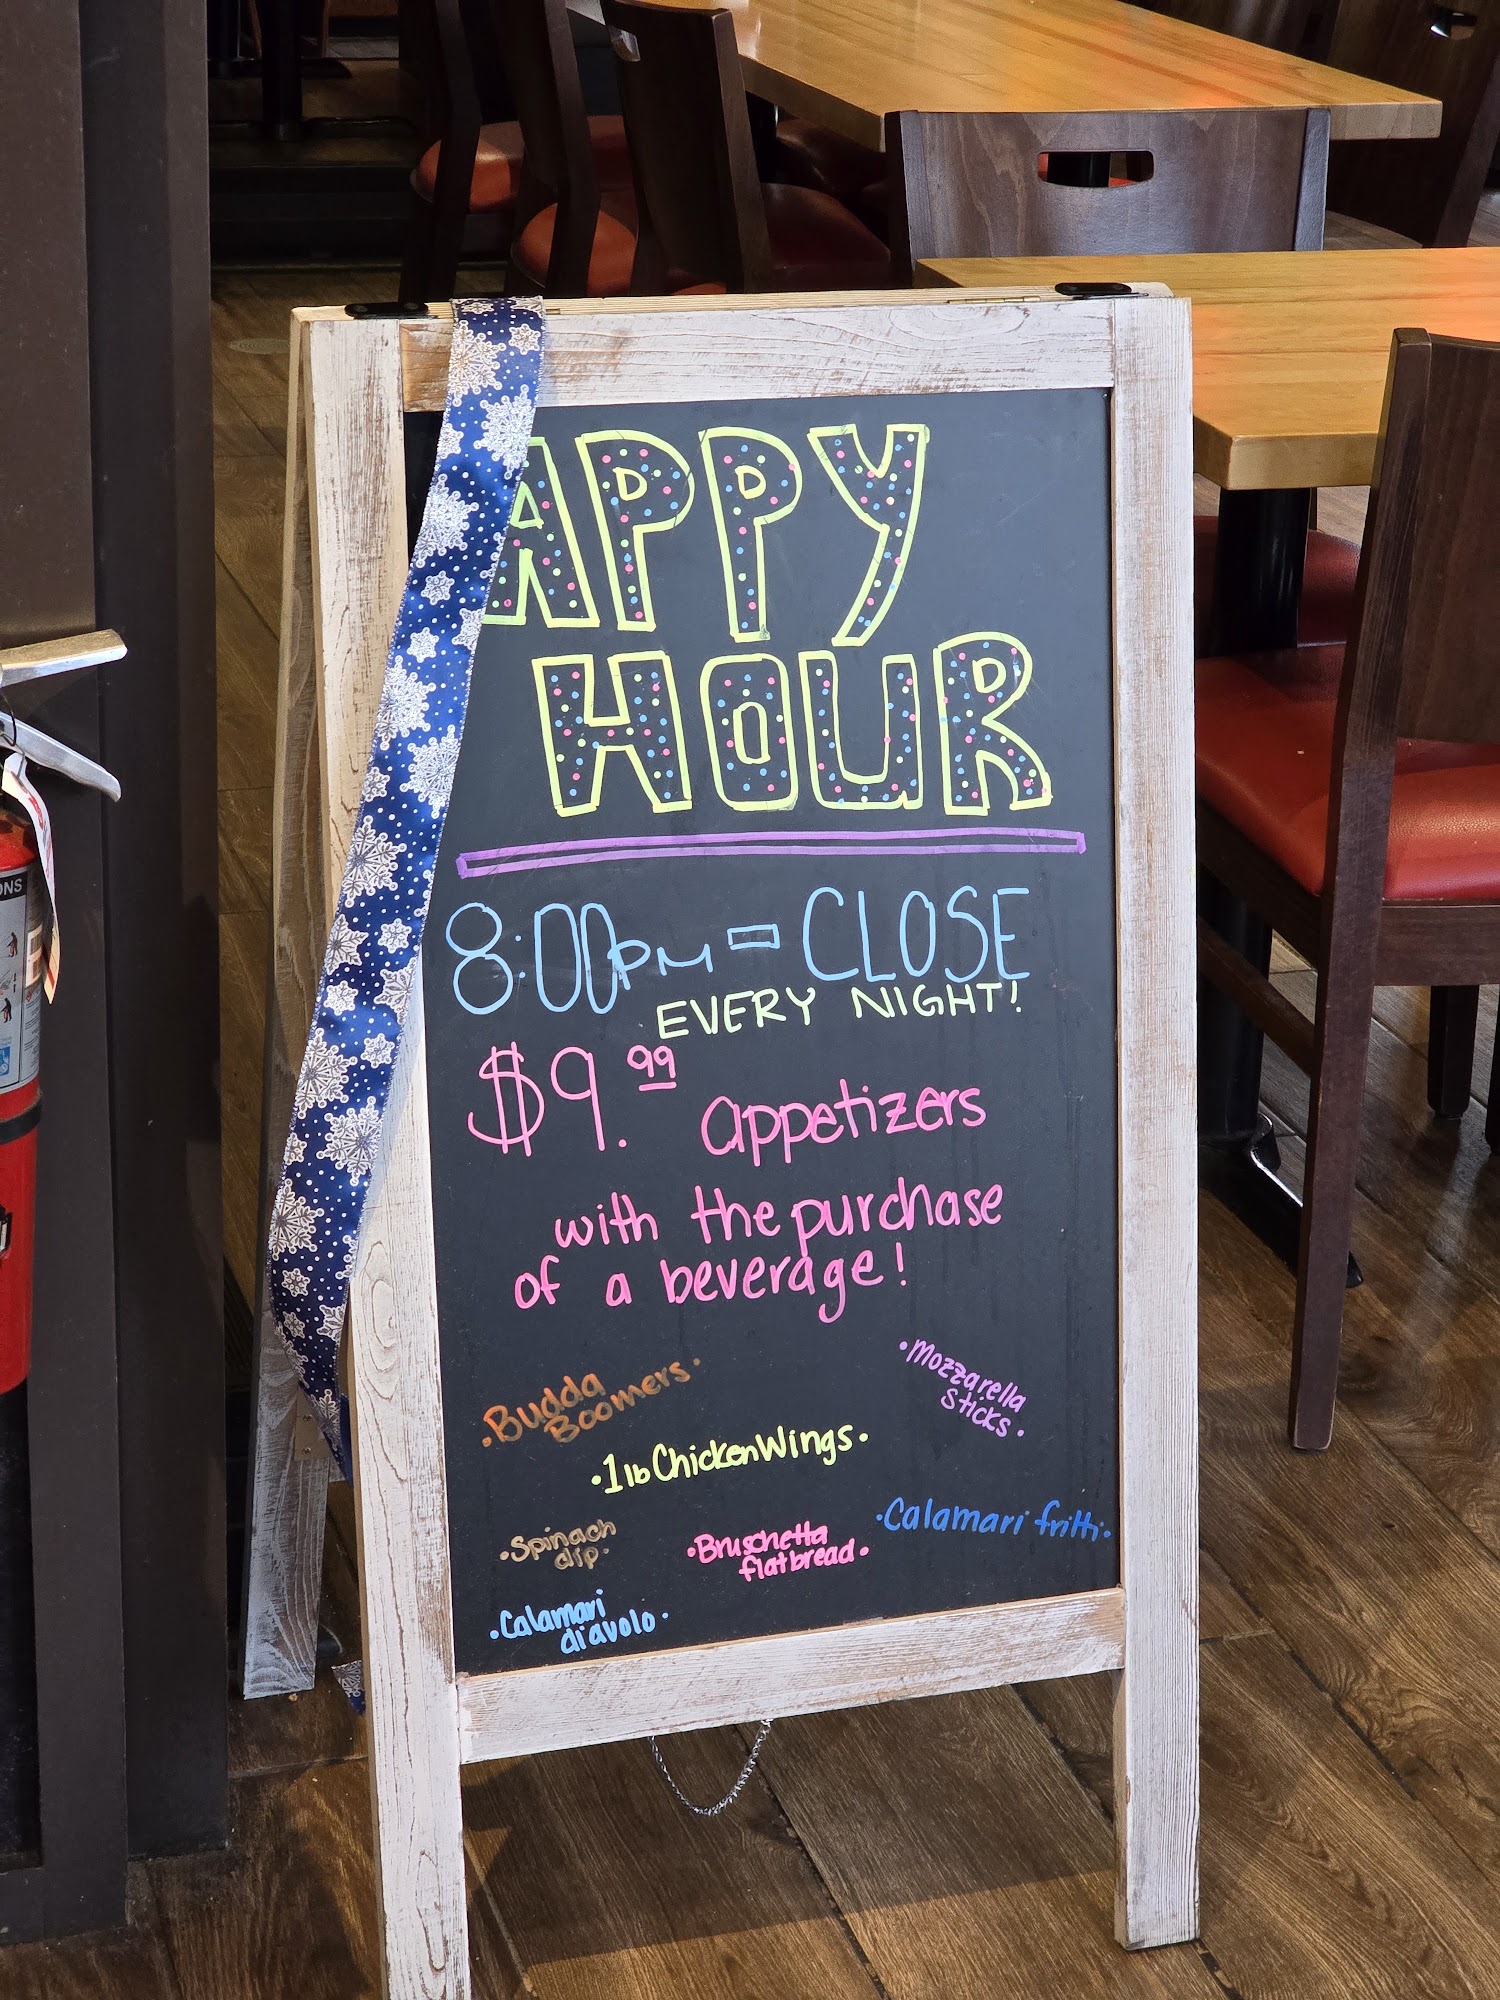 APPY
HOUR
8:00PM - CLOSE
EVERY NIGHT!
$9.99 appetizers
with the purchase
of a beverage!
• Budda
Boomers •
• Mozzarella
sticks •
• 1lb Chicken Wings •
• Spinach
dip •
• Bruschetta
flatbread •
• Calamari fritti •
• Calamari
diavolo •
ONS